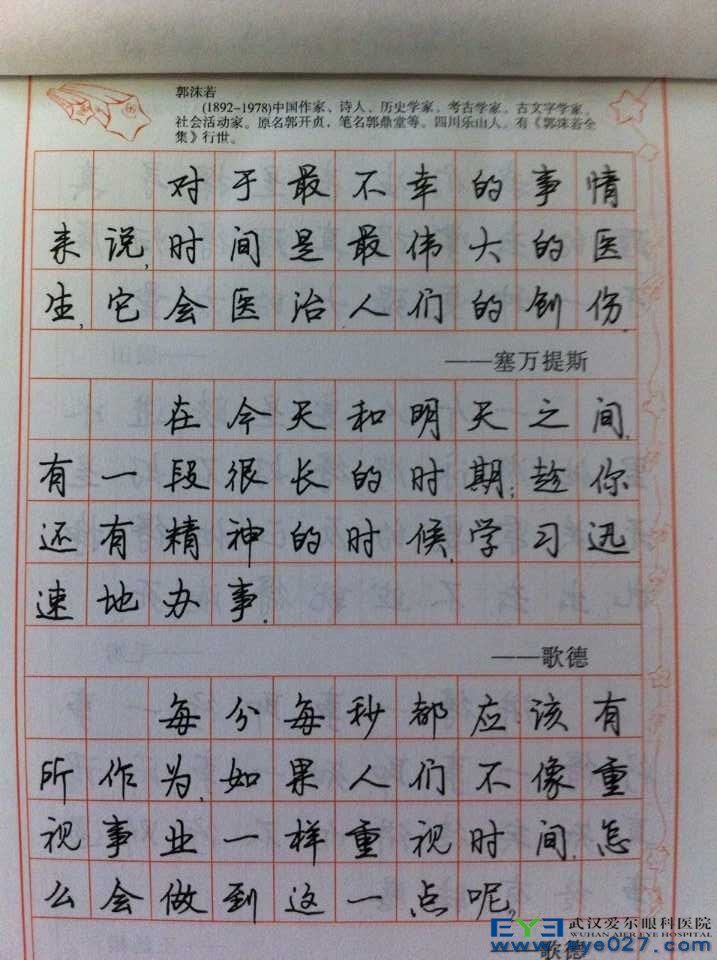 郭沫若
(1892-1978)中国作家、诗人、历史学家、考古学家、古文字学家、
社会活动家。原名郭开贞，笔名郭鼎堂等。四川乐山人。有《郭沫若全
集》行世。
对于最不幸的事情
来说,时间是最伟大的医
生,它会医治人们的创伤.
——塞万提斯
在今天和明天之间,
有一段很长的时期;趁你
还有精神的时候,学习迅
速地办事.
——歌德
每分每秒都应该有
所作为,如果人们不像重
视事业一样重视时间,怎
么会做到这一点呢?
EYE 武汉爱尔眼科医院
WUHAN AIER EYE HOSPITAL
www.eye027.com
——歌德